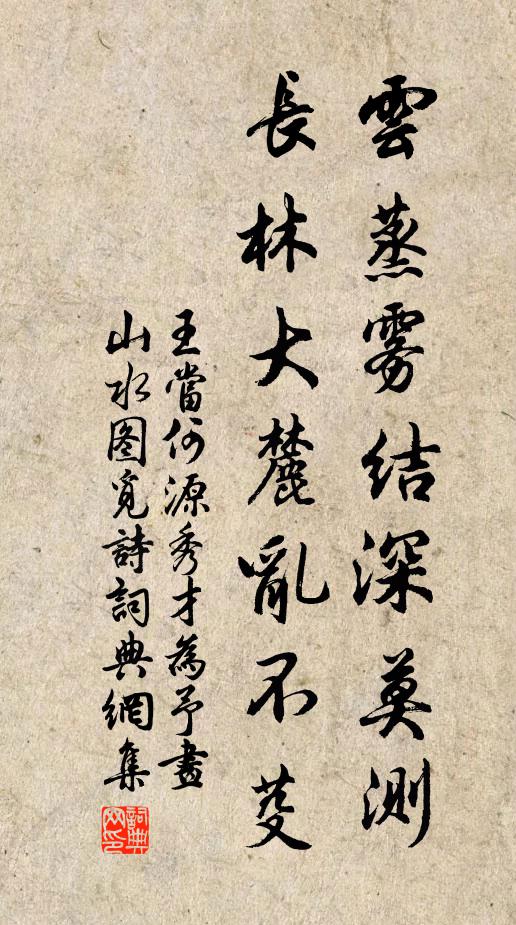 雲蒸雾结深莫測
長林大麓亂不芟
王當何源秀才為予畫
山水图覓詩詞典網集
詞典
网印